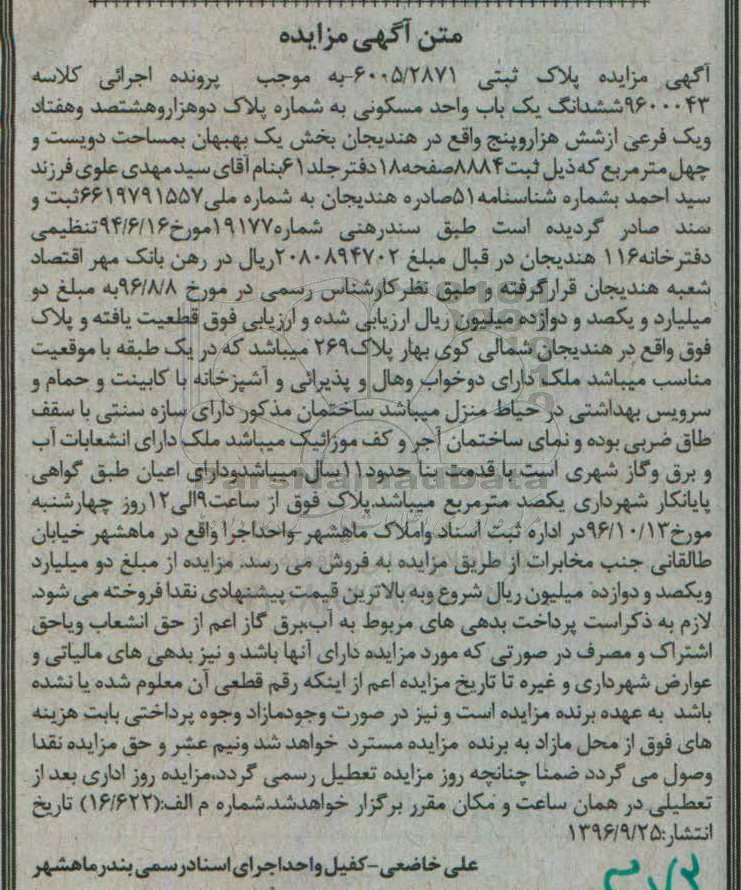 متن آگهی مزایده
آگهی مزایده پلاک ثبتی ۶۰۰۵/۲۸۷۱-به موجب پرونده اجرائی کلاسه
۹۶۰۰۰۴۳ششدانگ یک باب واحد مسکونی به شماره پلاک دوهزاروهشتصد وهفتاد
ویک فرعی ازشش هزاروپنج واقع در هندیجان بخش یک بهبهان بمساحت دویست و
چهل مترمربع که ذیل ثبت۸۸۸۴صفحه۱۸دفترجلد۶۱بنام آقای سید مهدی علوی فرزند
سید احمد بشماره شناسنامه۵۱صادره هندیجان به شماره ملی۶۶۱۹۷۹۱۵۵۷ثبت و
سند صادر گردیده است طبق سندرهنی شماره۱۹۱۷۷مورخ۹۴/۶/۱۶تنظیمی
دفترخانه۱۱۶ هندیجان در قبال مبلغ ۲۰۸۰۸۹۴۷۰۲ریال در رهن بانک مهر اقتصاد
شعبه هندیجان قرارگرفته و طبق نظرکارشناس رسمی در مورخ ۹۶/۸/۸به مبلغ دو
میلیارد و یکصد و دوازده میلیون ریال ارزیابی شده و ارزیابی فوق قطعیت یافته و پلاک
فوق واقع در هندیجان شمالی کوی بهار پلاک۲۶۹ میباشد که در یک طبقه با موقعیت
مناسب میباشد ملک دارای دوخواب وهال و پذیرائی و آشپزخانه با کابینت و حمام و
سرویس بهداشتی در حیاط منزل میباشد ساختمان مذکور دارای سازه سنتی با سقف
طاق ضربی بوده و نمای ساختمان آجر و کف موزائیک میباشد ملک دارای انشعابات آب
و برق وگاز شهری است با قدمت بنا حدود۱۱سال میباشدودارای اعیان طبق گواهی
پایانکار شهرداری یکصد مترمربع میباشد.پلاک فوق از ساعت۹الی۱۲روز چهارشنبه
مورخ۹۶/۱۰/۱۳در اداره ثبت اسناد واملاک ماهشهر-واحداجرا واقع در ماهشهر خیابان
طالقانی جنب مخابرات از طریق مزایده به فروش می رسد. مزایده از مبلغ دو میلیارد
ویکصد و دوازده میلیون ریال شروع وبه بالاترین قیمت پیشنهادی نقدا فروخته می شود.
لازم به ذکراست پرداخت بدهی های مربوط به آب،برق گاز اعم از حق انشعاب ویاحق
اشتراک و مصرف در صورتی که مورد مزایده دارای آنها باشد و نیز بدهی های مالیاتی و
عوارض شهرداری و غیره تا تاریخ مزایده اعم از اینکه رقم قطعی آن معلوم شده یا نشده
باشد به عهده برنده مزایده است و نیز در صورت وجودمازاد وجوه پرداختی بابت هزینه
های فوق از محل مازاد به برنده مزایده مسترد خواهد شد ونیم عشر و حق مزایده نقدا
وصول می گردد ضمنا چنانچه روز مزایده تعطیل رسمی گردد،مزایده روز اداری بعد از
تعطیلی در همان ساعت و مکان مقرر برگزار خواهدشد.شماره م الف:(۱۶/۶۲۲) تاریخ
انتشار:۱۳۹۶/۹/۲۵
علی خاضعی-کفیل واحداجرای اسنادرسمی بندرماهشهر
ParsNamadData